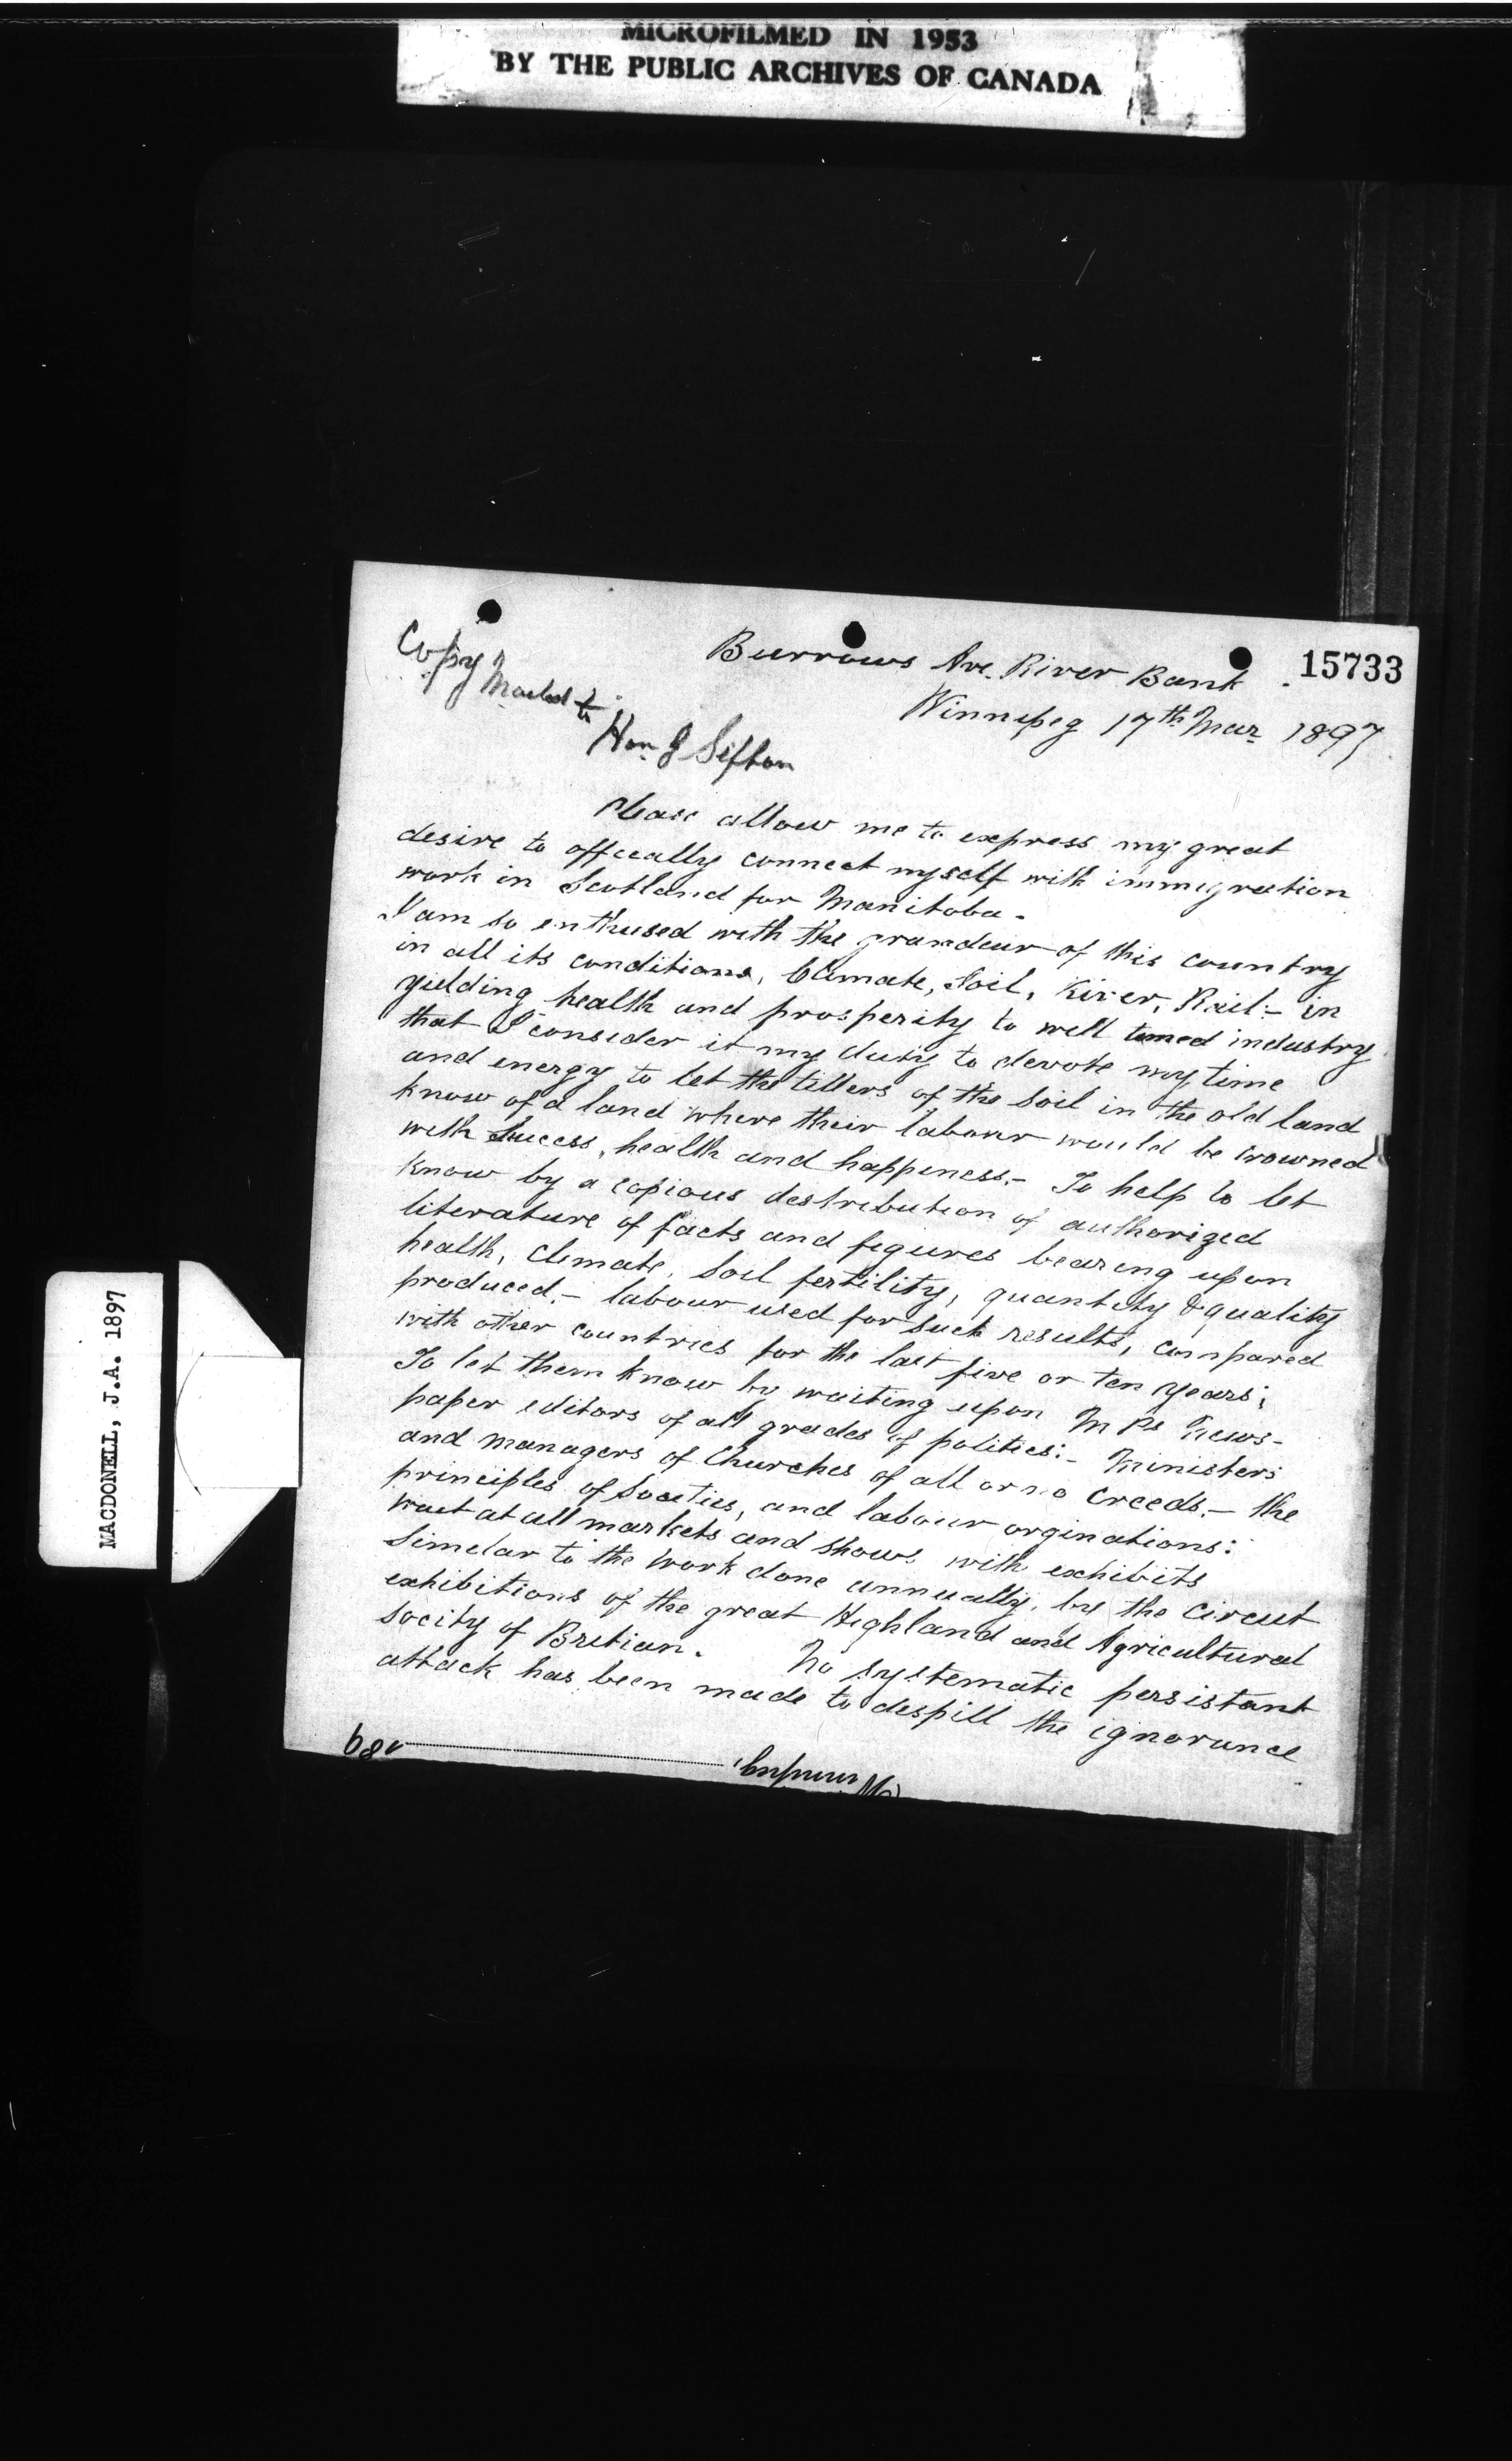 MICROFILMED IN 1953
BY THE PUBLIC ARCHIVES OF CANADA
15733
Burrows Ave. River Bank
Winnipeg 17th Mar 1897
Copy Mailed to
Hon. Sifton
Please allow me to express my great
desire to offically connect myself with immigration
work in Scotland for Manitoba.
I am so enthused with the grandeur of this country
in all its conditions, Climate, Soil, River, Rail:- in
yielding health and prosperity to well timed industry
that I consider it my duty to devote my time
and energy to let the tillers of the soil in the old land
know of a land where their labour would be crowned
with success, health and happiness.- To help to let
know by a copious destribution of authorized
literature of facts and figures bearing upon
health, climate, soil fertility, quantity & quality
produced.- labour used for such results, compared
with other countries for the last five or ten years;
To let them know by waiting upon M Ps News-
paper editors of all grades of politics:- Ministers
and managers of Churches of all or no creeds.- the
principles of Societies, and labour orginations:
wait at all markets and shows with exhibits
Similar to the work done annually, by the circuit
exhibitions of the great Highland and Agricultural
Socity of Britian. No systematic persistant
attack has been made to despill the ignorance
Winnipeg, 189
MACDONELL, J.A. 1897